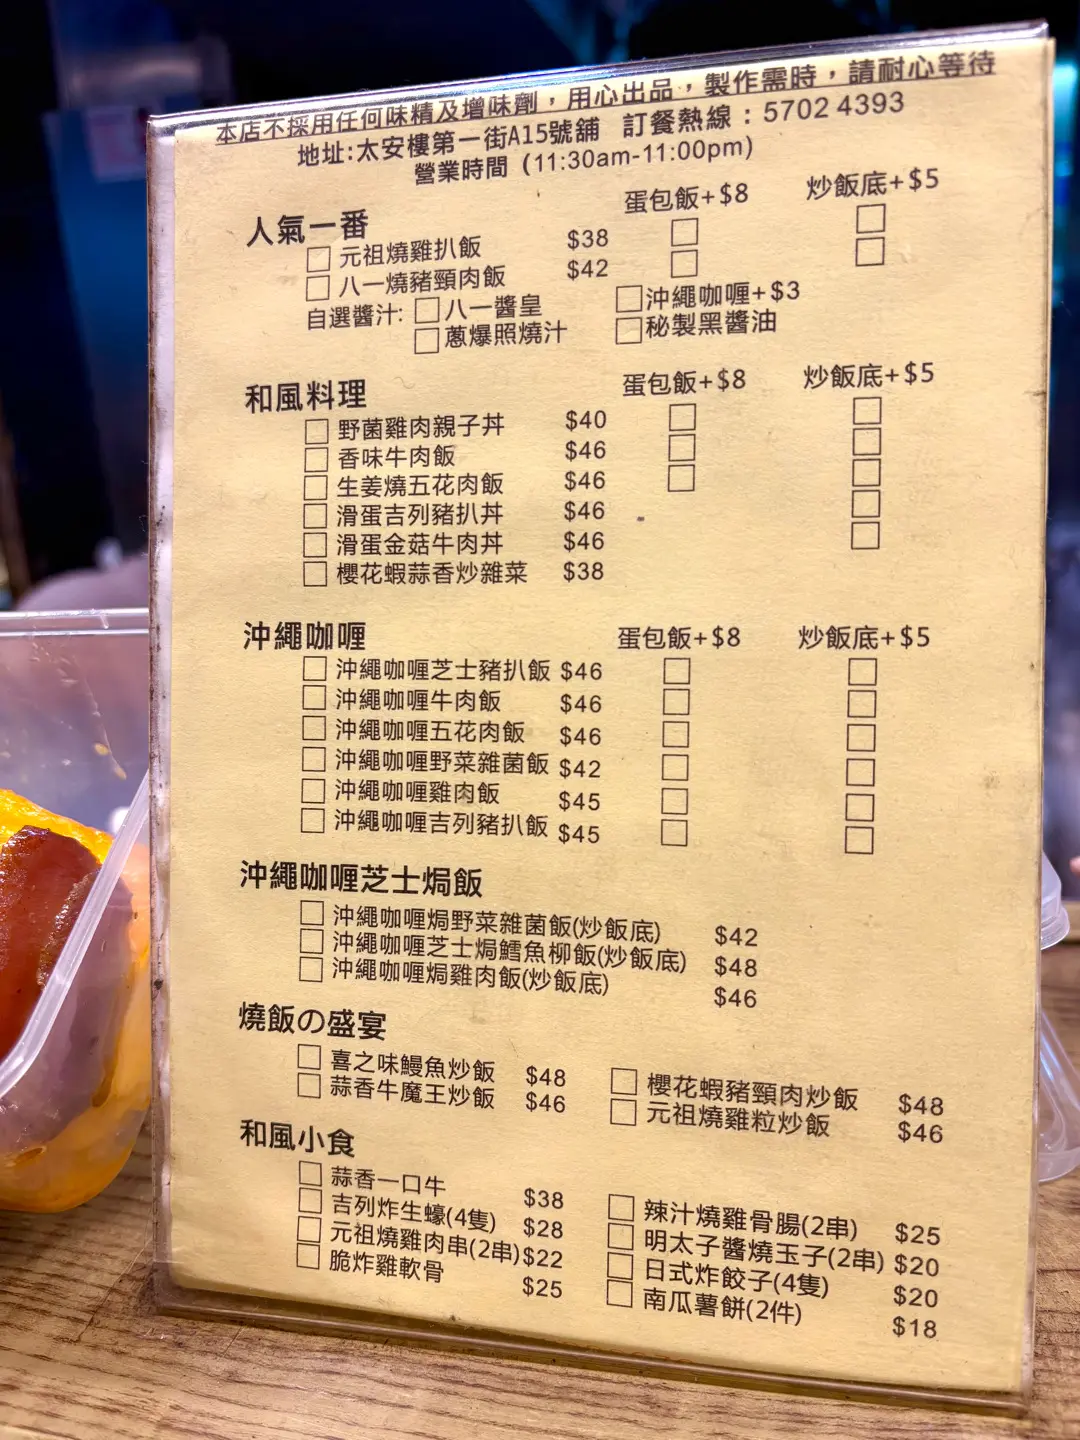 本店不採用任何味精及增味劑，用心出品，製作需時，請耐心等待
地址:太安樓第一街A15號舖 訂餐熱線：5702 4393
營業時間（11:30am-11:00pm）
人氣一番 蛋包飯+$8 炒飯底+$5
□ 元祖燒雞扒飯 $38 □ □
□ 八一燒豬頸肉飯 $42 □ □
自選醬汁: □八一醬皇 □沖繩咖喱+$3
□蔥爆照燒汁 □秘製黑醬油
和風料理 蛋包飯+$8 炒飯底+$5
□ 野菌雞肉親子丼 $40 □ □
□ 香味牛肉飯 $46 □ □
□ 生姜燒五花肉飯 $46 □ □
□ 滑蛋吉列豬扒丼 $46 □
□ 滑蛋金菇牛肉丼 $46 □
□ 櫻花蝦蒜香炒雜菜 $38
沖繩咖喱 蛋包飯+$8 炒飯底+$5
□ 沖繩咖喱芝士豬扒飯 $46 □ □
□ 沖繩咖喱牛肉飯 $46 □ □
□ 沖繩咖喱五花肉飯 $46 □ □
□ 沖繩咖喱野菜雜菌飯 $42 □ □
□ 沖繩咖喱雞肉飯 $45 □ □
□ 沖繩咖喱吉列豬扒飯 $45 □ □
沖繩咖喱芝士焗飯
□ 沖繩咖喱焗野菜雜菌飯(炒飯底) $42
□ 沖繩咖喱芝士焗鱈魚柳飯(炒飯底) $48
□ 沖繩咖喱焗雞肉飯(炒飯底) $46
燒飯の盛宴
□ 喜之味鰻魚炒飯 $48 □ 櫻花蝦豬頸肉炒飯 $48
□ 蒜香牛魔王炒飯 $46 □ 元祖燒雞粒炒飯 $46
和風小食
□ 蒜香一口牛 $38 □ 辣汁燒雞骨腸(2串) $25
□ 吉列炸生蠔(4隻) $28 □ 明太子醬燒玉子(2串) $20
□ 元祖燒雞肉串(2串) $22 □ 日式炸餃子(4隻) $20
□ 脆炸雞軟骨 $25 □ 南瓜薯餅(2件) $18